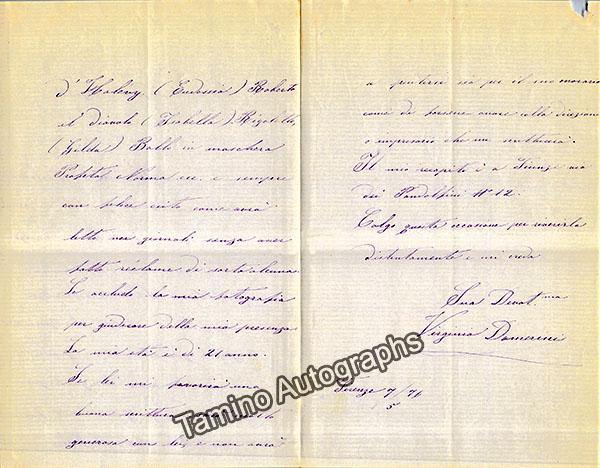 d'Halevy (Eudossia) Roberto
il diavolo (Isabella), Rigoletto
(Gilda) Ballo in maschera
Profeta Norma ecc. e sempre
con felice esito come avrà
letto nei giornali senza aver
fatto réclame di sorta alcuna.
Le accludo la mia fotografia
per giudicare della mia presenza
La mia età è di 21 anno.
Se lei mi favorirà una
buona scrittura
generosa con lei, e non avrà
a pentirsi sia per il suo
come da persone onore colla direzione
o impresario che mi scritturerà.
Il mio recapito è a Firenze via
dei Pandolfini N° 12.
Colgo questa occasione per riverirla
distintamente e mi creda
Sua Devot.ma
Virginia Damerini
Firenze 7/5 76
Tamino Autographs